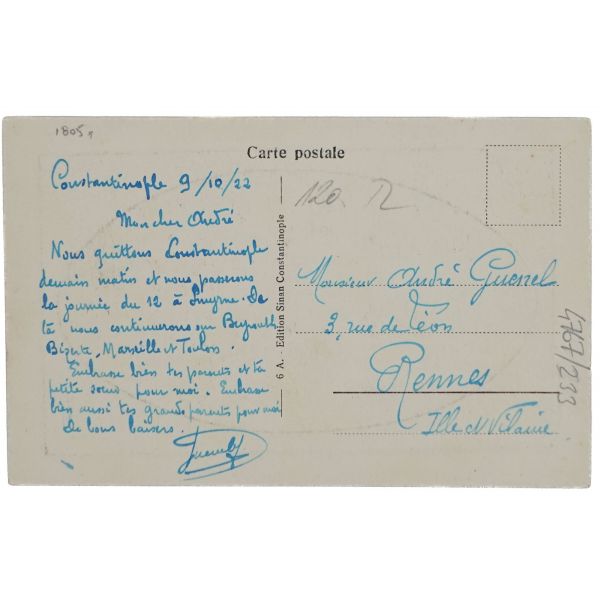 1805
Carte postale
Constantinople 9/10/22
Mon cher André
Nous quittons Constantinople
demain matin et nous passerons
la journée du 12 à Smyrne. De
là nous continuerons sur Beyrouth
Bizerte, Marseille et Toulon.
Embrasse bien tes parents et ta
petite soeur pour moi. Embrasse
bien aussi tes grands parents pour moi
De bons baisers.
6 A. - Edition Sinan Constantinople
120
Monsieur André Guenel
3, rue de Léon
Rennes
Ille et Vilaine
4767/233